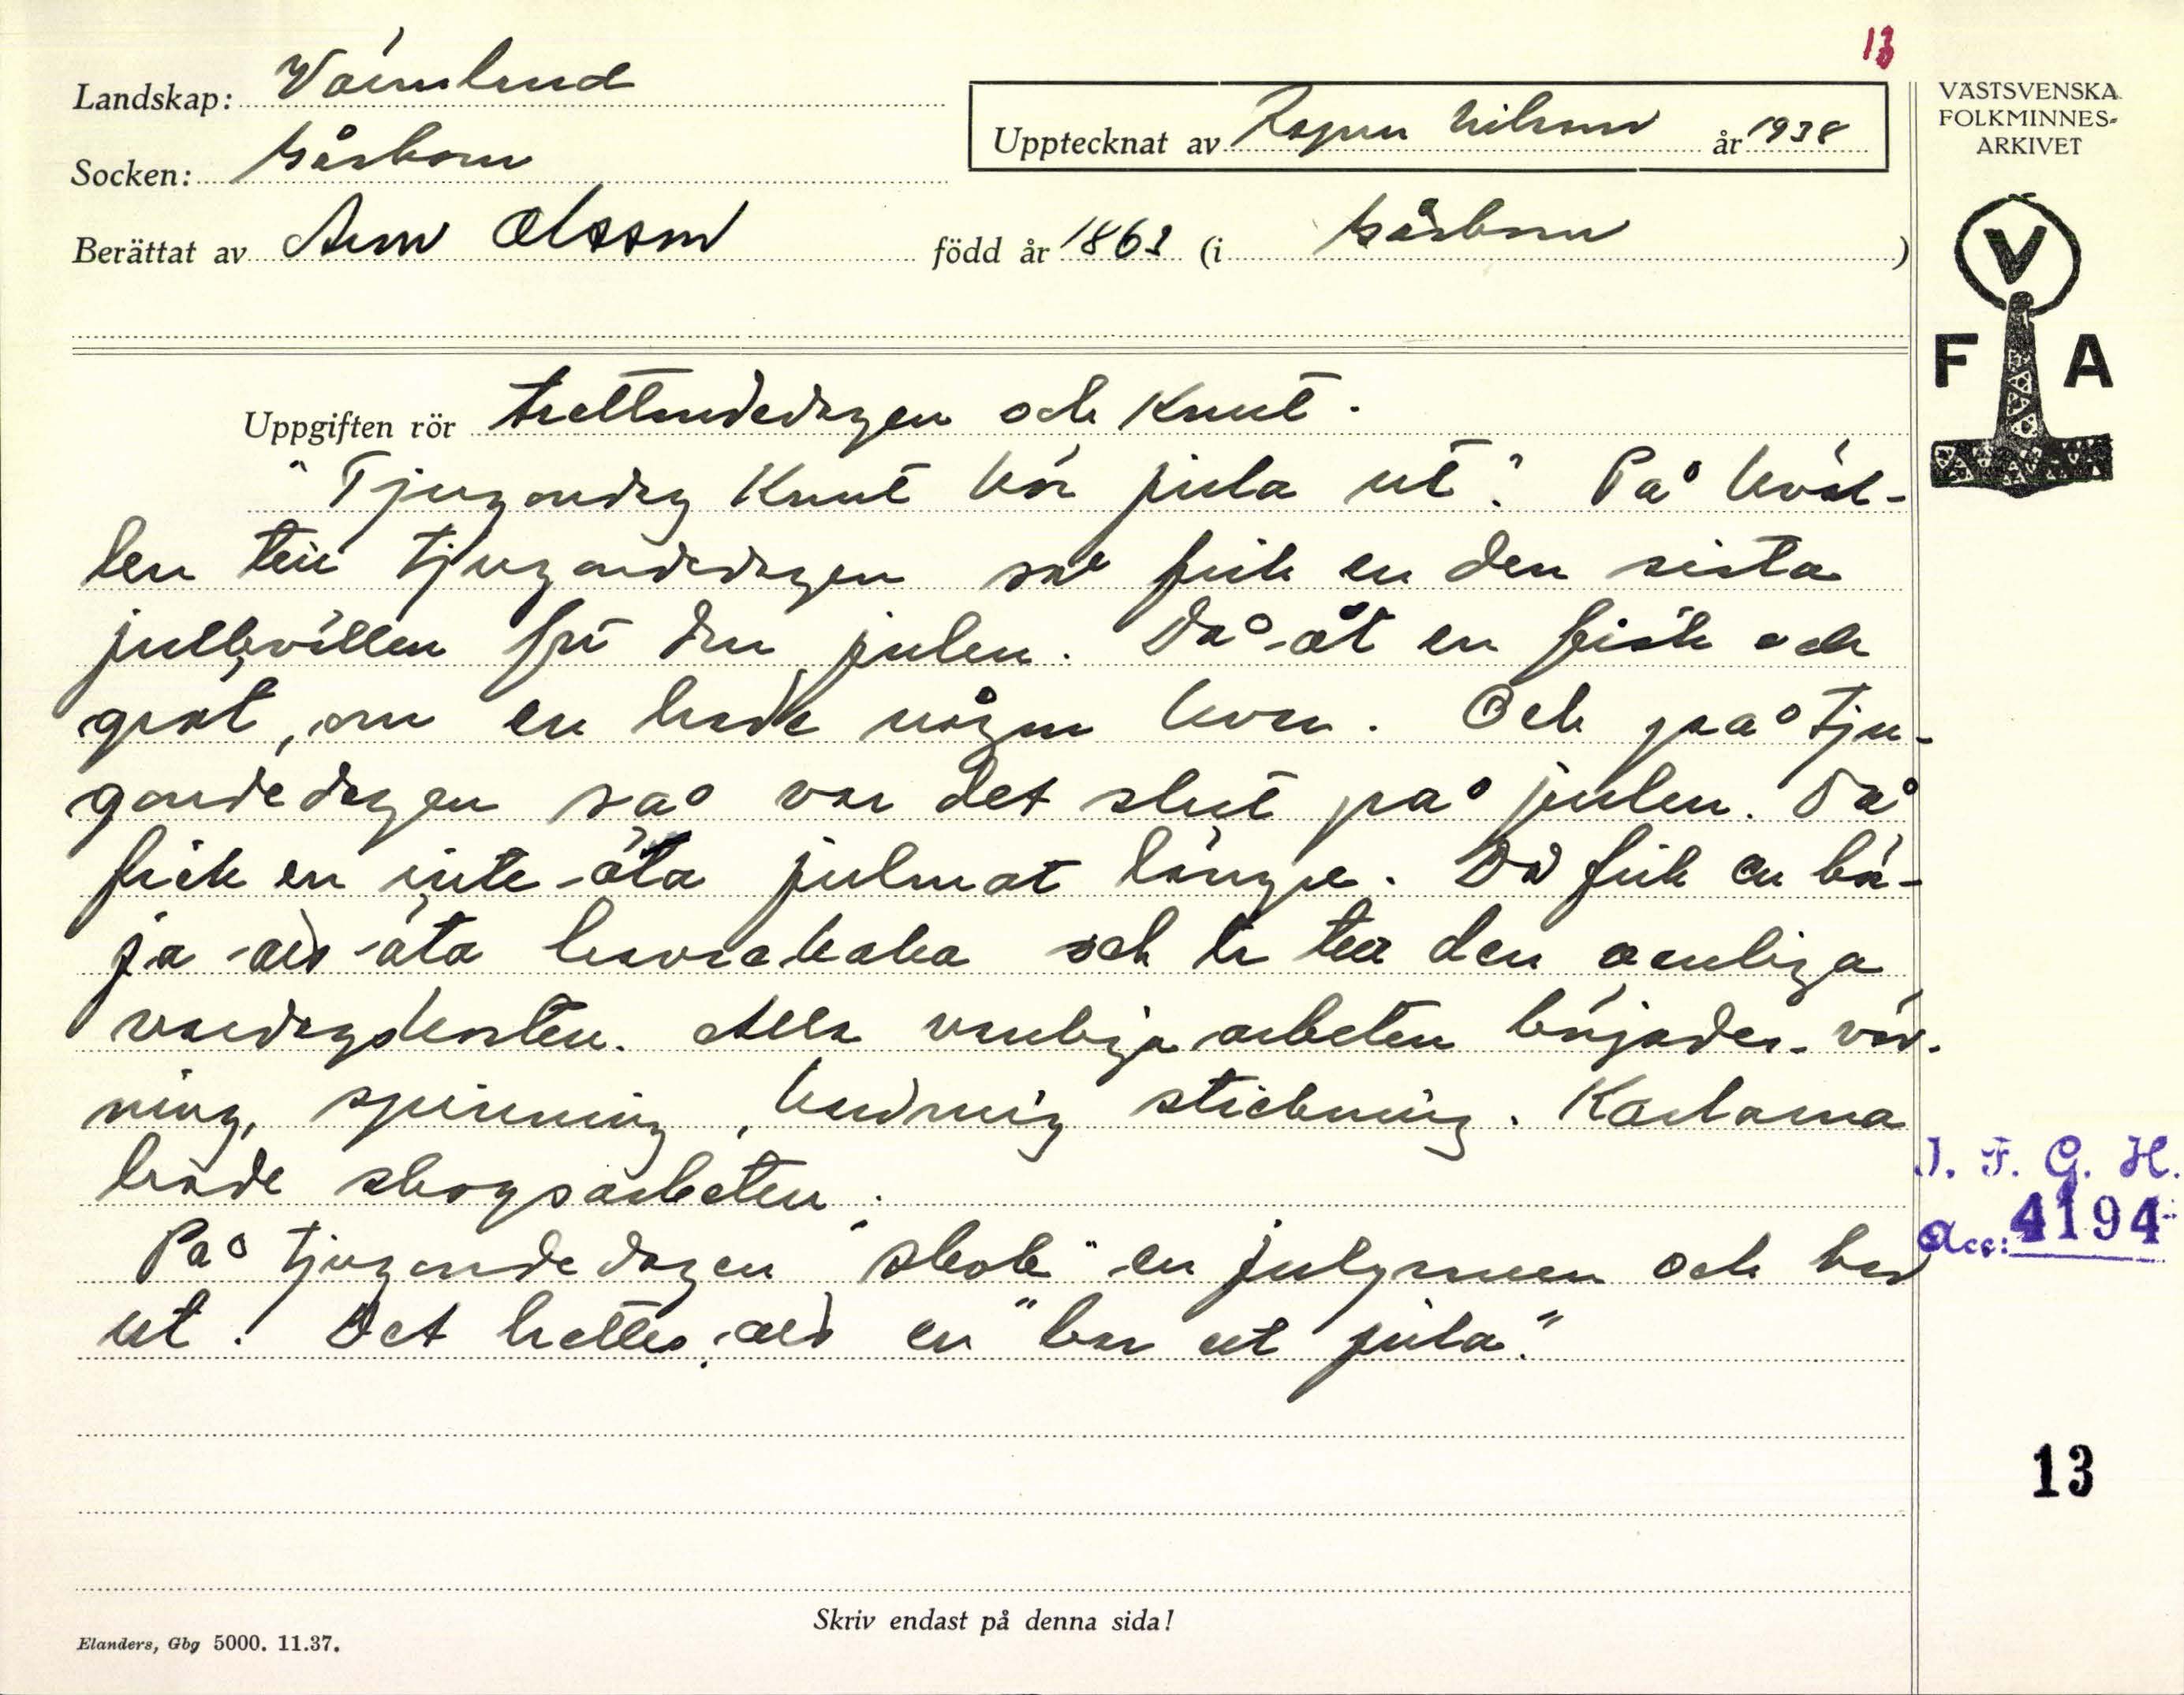 13
Landskap: Värmland
Upptecknat av Ragnar Nilsson år 1938
Socken: Gåsborn
Berättat av Anna Olsson född år 1863 (i Gåsborn)
VÄSTSVENSKA
FOLKMINNES-
ARKIVET
V
F A
Uppgiften rör trettondedagen och Knut.
"Tjugondag Knut kör jula ut". På kväl-
len te tjugondedagen så fick en den sista
julkvällen för den julen. Då åt en fisk och
gröt, om en hade någon kvar. Och på tju-
gondedagen så var det slut på julen. Då
fick en inte äta julmat längre. Då fick en bör-
ja att äta havrekaka och ta te den vanliga
vardagskosten. Alla vanliga arbeten börjades - väv-
ning, spinning, kardning stickning. Karlarna
hade skogsarbeten.
På tjugondedagen "skok" en julgranen och bar
ut. Det hettes att en "bar ut jula."
I. F. G. H.
Acc: 4194
13
Skriv endast på denna sida!
Elanders, Gbg 5000. 11.37.